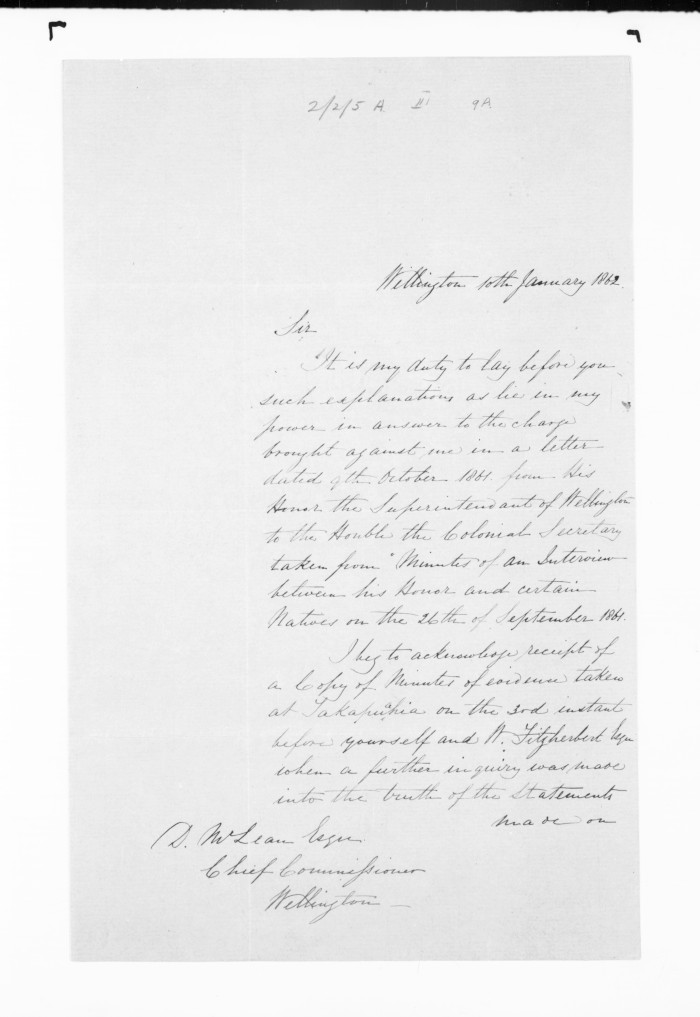 2/2/5 A III 9A
Wellington 10th January 1862.
Sir
It is my duty to lay before you
such explanations as lie in my
power in answer to the charge
brought against me in a letter
dated 9th October 1861. from His
Honor the Superintendant of Wellington
to the Honble the Colonial Secretary
taken from "Minutes of an Interview
between his Honor and certain
Natives on the 26th of September 1861.
I beg to acknowledge receipt of
a Copy of Minutes of evidence taken
at Takapuahia on the 3rd instant
before yourself and W. Fitzherbert Esqre
when a further inquiry was made
into the truth of the Statements
made on
D. McLean Esqre
Chief Commissioner
Wellington